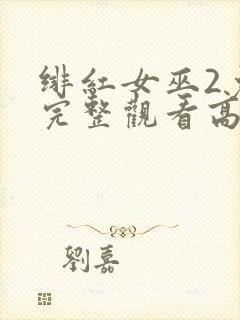 绯紅女巫2
完整觀看高
劉嘉